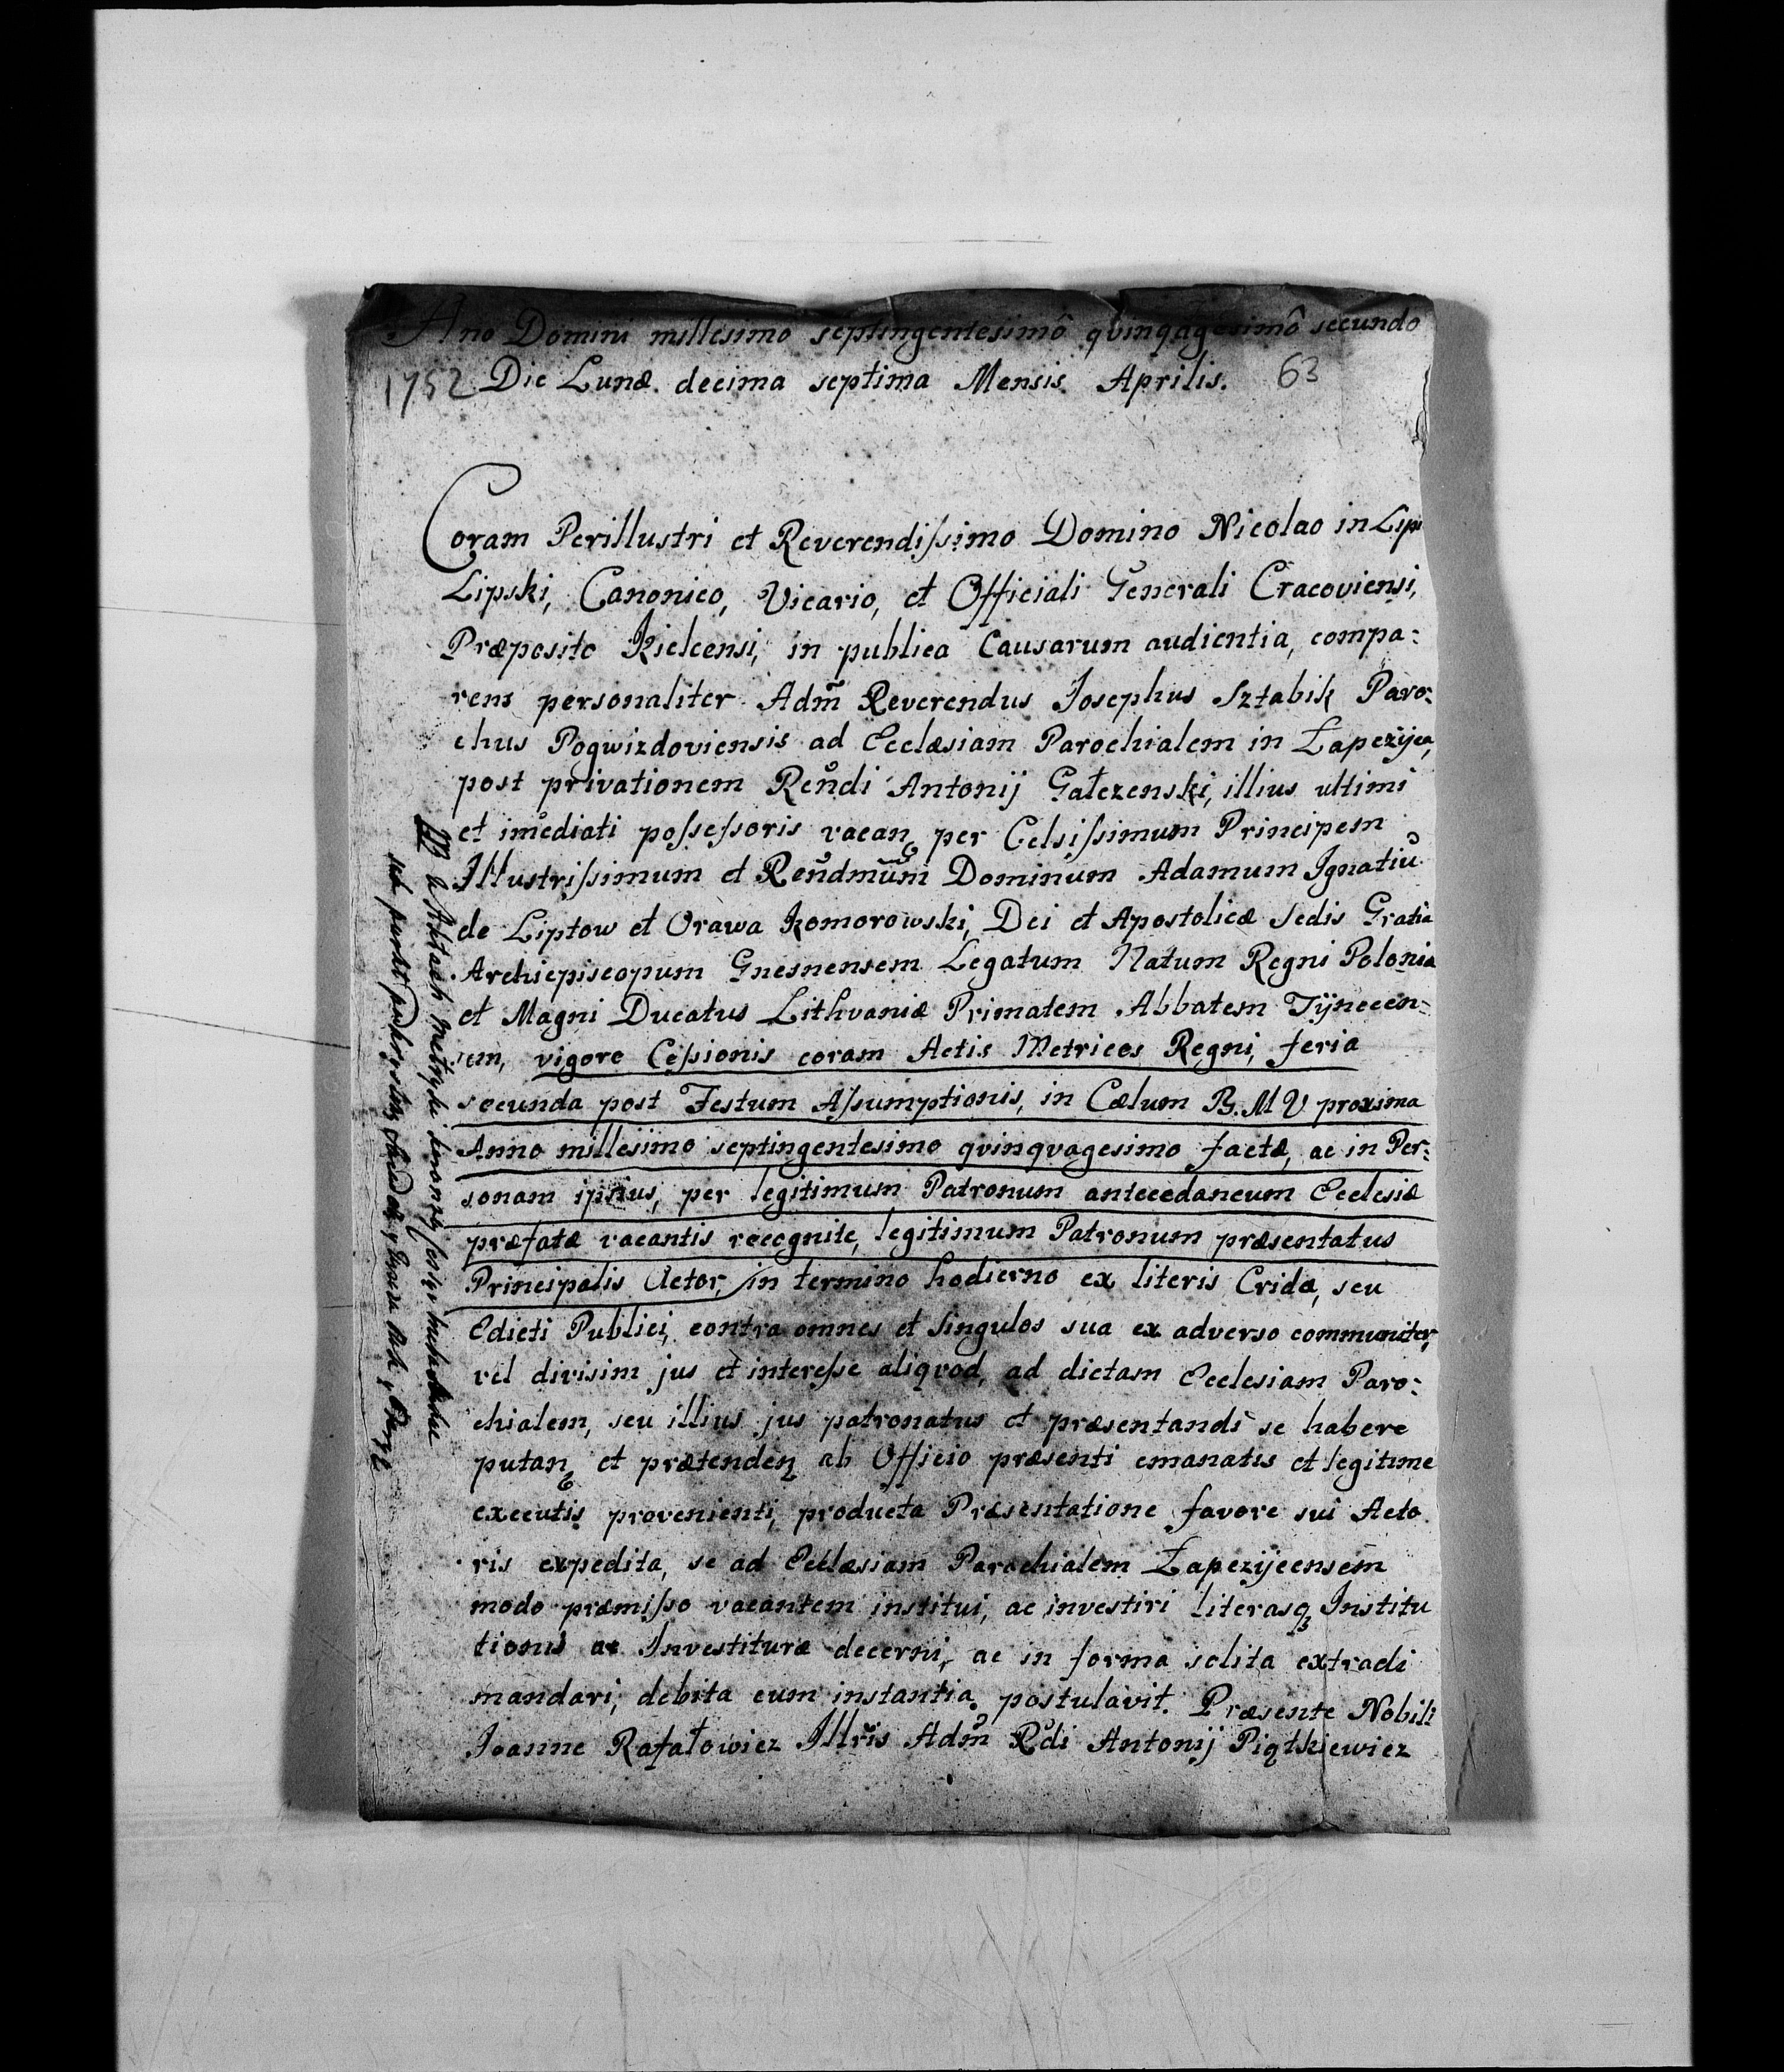 Ano Domini millesimo septingentesimô qvinqagesimô secundo
1752 Die Lunæ decima septima Mensis Aprilis. 63
Coram Perillustri et Reverendissimo Domino Nicolao in Lipe
Lipski, Canonico, Vicario, et Officiali Generali Cracoviensi,
Præposito Kielcensi, in publica Causarum audientia, compa:
rens personaliter Adm̃ Reverendus Josephus Sztabik Paro:
chus Pogwizdoviensis ad Ecclæsiam Parochialem in Łapczyca,
post privationem Rendi Antonij Gałczenski, illius ultimi
et imediati possessoris vacan per Celsissimum Principem
Illustrissimum et Rendmum Dominum Adamum Ignatiu
de Liptow et Orawa Komorowski, Dei et Apostolicæ Sedis Gratia
Archiepiscopum Gnesnensem Legatum Natum Regni Polonia
et Magni Ducatus Lithvaniæ Primatem Abbatem Tÿnecen:
sem, vigore Cessionis coram Actis Metrices Regni, feria
secunda post Festum Assumptionis, in Cælum B. M V proxima
Anno millesimo septingentesimo qvinqvagesimo factæ, ac in Per:
sonam ipsius, per legitimum Patronum antecedaneum Ecclesiæ
præfatæ vacantis recognite, legitimum Patronum præsentatus
Principalis Actor, in termino hodierno ex literis Cridæ, seu
Edicti Publici, contra omnes et Singulos sua ex adverso communiter,
vel divisim jus et interesse aliqvod, ad dictam Ecclesiam Paro:
chialem, seu illius jus patronatus et præsentandi se habere
putan et prætenden ab Officio præsenti emanatis et legitime
executis provenienti, producta Præsentatione favore sui Acto
ris expedita, se ad Ecclæsiam Parochialem Łapczyeensem
modo præmisso vacantem institui, ac investiri literasq Institu
tionis ac Investituræ decerni, ac in forma solita extradi
mandari, debita cum instantia postulavit. Præsente Nobili
Joanne Rafałowicz Illris Adm̃ Rdi Antonij Piątkiewicz
NB w Aktach metryki koronney